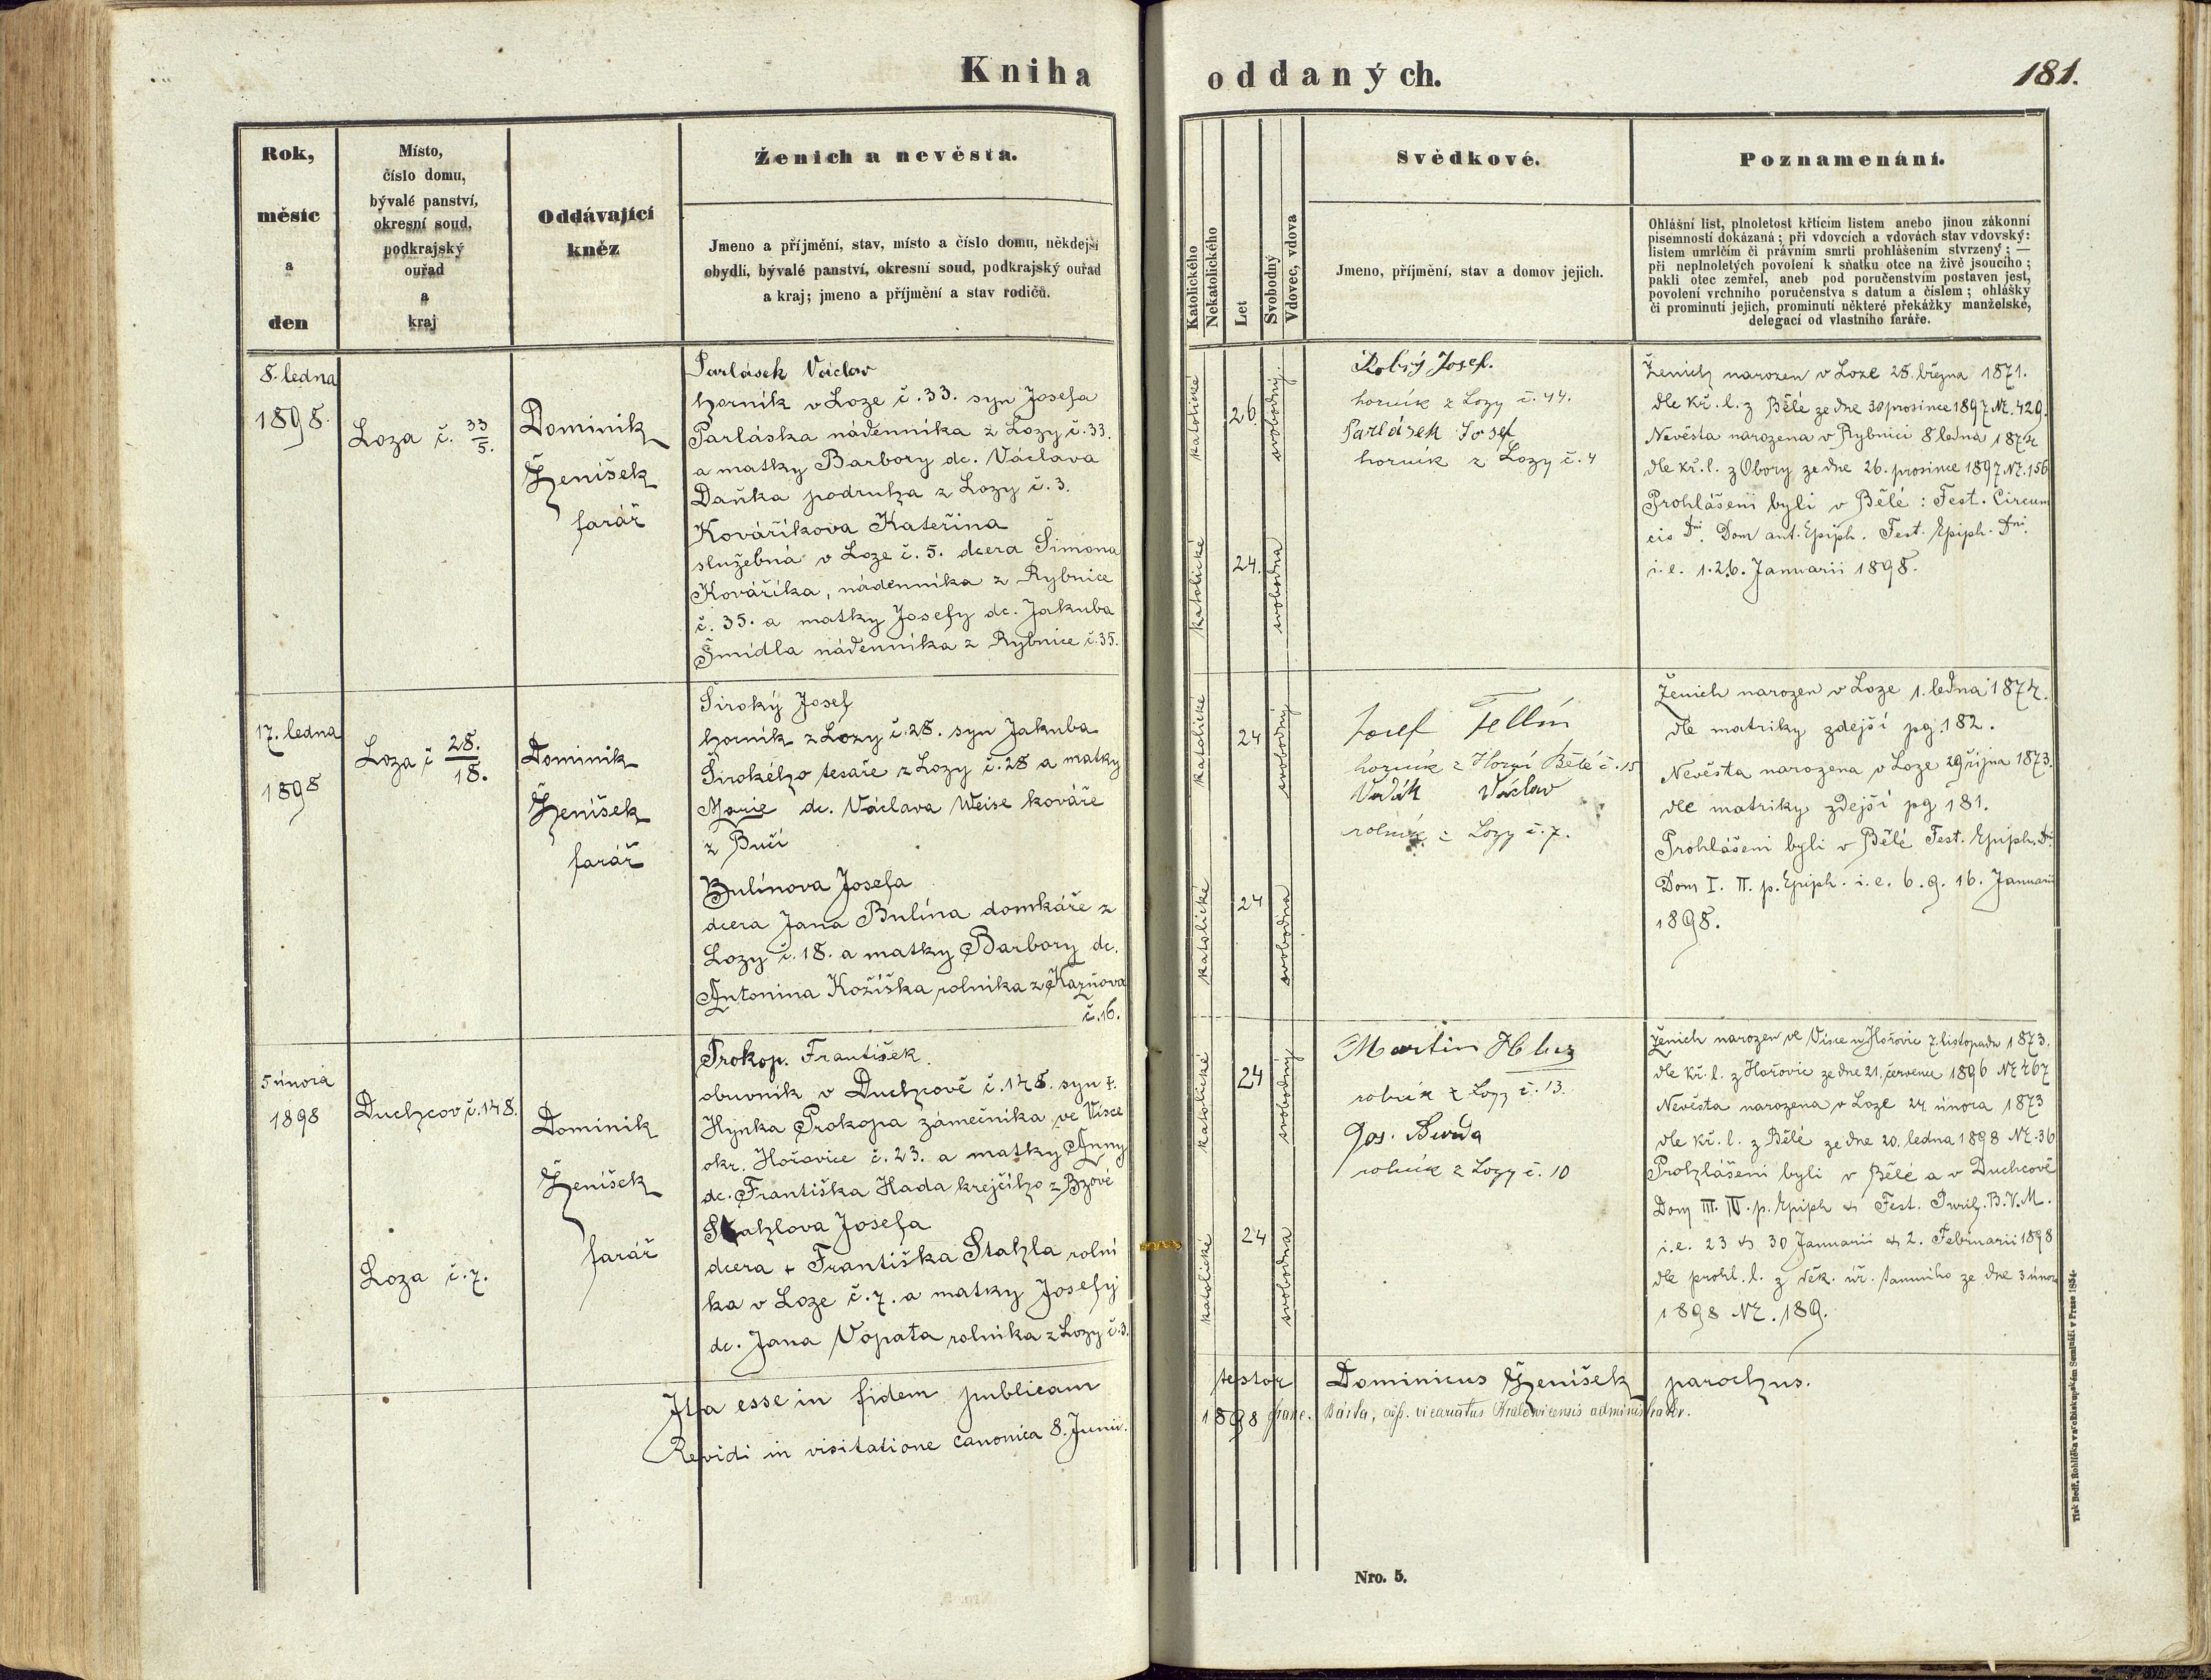 Kniha oddaných.
181.
Rok,
měsíc
a
den
Místo,
číslo domu,
bývalé panství,
okresní soud,
podkrajský
ouřad
a
kraj
Oddávající
kněz
Ženich a nevěsta.
Jmeno a příjmění, stav, místo a číslo domu, někdejší
obydlí, bývalé panství, okresní soud, podkrajský ouřad
a kraj; jmeno a příjmění a stav rodičů.
Katolického
Nekatolického
Let
Svobodný
Vdovec, vdova
Svědkové.
Jmeno, příjmění, stav a domov jejich.
Poznamenání.
Ohlášní list, plnoletost křticím listem anebo jinou zákonní
písemností dokázaná; při vdovcích a vdovách stav vdovský:
listem umrlčím či právním smrti prohlášením stvrzený; —
při neplnoletých povolení k sňatku otce na živě jsoucího;
pakli otec zemřel, aneb pod poručenstvím postaven jest,
povolení vrchního poručenstva s datum a číslem; ohlášky
či prominutí jejich, prominutí některé překážky manželské,
delegací od vlastního faráře.
8. ledna
1898.
Loza č. 33/5.
Dominik
Ženíšek
farář
Parlásek Václav
horník v Loze č. 33. syn Josefa
Parláska nádenníka z Lozy č. 33.
a matky Barbory dc. Václava
Daňka podruha z Lozy č. 3.
Kováříkova Kateřina
služebná v Loze č. 5. dcera Šimona
Kováříka, nádenníka z Rybnice
č. 35. a matky Josefy dc. Jakuba
Šmídla nádenníka z Rybnice č. 35.
katolické
26.
svobodný.
katolické
24.
svobodna
Josef.
horník z Lozy č. 44.
Parlásek Josef
horník z Lozy č. 4
Ženich narozen v Loze 28. března 1871.
dle kř. l. z Bělé ze dne 30 prosince 1897 Nr. 429.
Nevěsta narozena v Rybnici 8 ledna 1874
dle kř. l. z Obory ze dne 26. prosince 1897 Nr. 156
Prohlášeni byli v Bělé: Fest. Circum
cis Dni. Dom ant. Epiph. Fest. Epiph. Dni.
i. e. 1. 2. 6. Januarii 1898.
17. ledna
1898
Loza č 28./18.
Dominik
Ženíšek
farář
Široký Josef
horník z Lozy č. 28. syn Jakuba
Širokého tesaře z Lozy č. 28 a matky
Marie dc. Václava Weise kováře
z Bučí
Bulínova Josefa
dcera Jana Bulína domkáře z
Lozy č. 18. a matky Barbory dc.
Antonina Kožíška rolníka z Kazňova
č. 16.
katolické
24
svobodný
katolické
24
svobodna
Josef Fellín
horník z Horní Bělé č. 15
Vaďák Václav
rolník z Lozy č. 7.
Ženich narozen v Loze 1. ledna 1874.
dle matriky zdejší pg. 182.
Nevěsta narozena v Loze 29 října 1873.
dle matriky zdejší pg 181.
Prohlášeni byli v Bělé Fest. Epiph. Dni
Dom I. II. p. Epiph. i. e. 6. 9. 16. Januarii
1898.
5 února
1898
Duchcov č. 148.
Loza č. 7.
Dominik
Ženíšek
farář
Prokop. František.
obuvník v Duchcově č. 148. syn †
Hynka Prokopa zámečníka, ve Vísce
okr. Hořovice č. 23. a matky Anny
dc. Františka Hada krejčího z Bzové
Stahlova Josefa
dcera + Františka Stahla rolní
ka v Loze č. 7. a matky Josefy
dc. Jana Vopata rolníka z Lozy č. 3.
katolické
24
svobodný
katolické
24
svobodna
Martin
rolník z Lozy č. 13.
Jos.
rolník z Lozy č. 10
Ženich narozen ve Vísce u Hořovic 7. listopadu 1873.
dle kř. l. z Hořovic ze dne 21. července 1896 Nr 467
Nevěsta narozena v Loze 24. února 1873
dle kř. l. z Bělé ze dne 20. ledna 1898 Nr. 36
Prohlášeni byli v Bělé a v Duchcově
Dom III. IV. p. Epiph & Fest. Purif. B. V. M.
i. e. 23 & 30 Januarii & 2. Februarii 1898
dle prohl. l. z děk. úř. tamního ze dne 3 února
1898 Nr. 189.
Ita esse in fidem publicam testor Dominicus Ženíšek parochus.
Revidi in visitatione canonica 8. Junii. 1898 Franc. Bárta, vicariatus Kralovicensis administrator.
Nro. 5.
Tisk Bedř. Rohlíčka v arcibiskupském Semináři v Praze 1854.